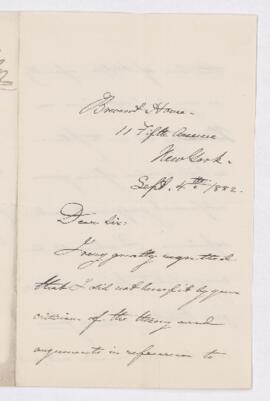 Brevoort House.
11 Fifth Avenue
New York.
Sept. 4th. 1882.
Dear Sir:
I very greatly regretted
that I did not benefit by your
criticism of the theory and
arguments in reference to